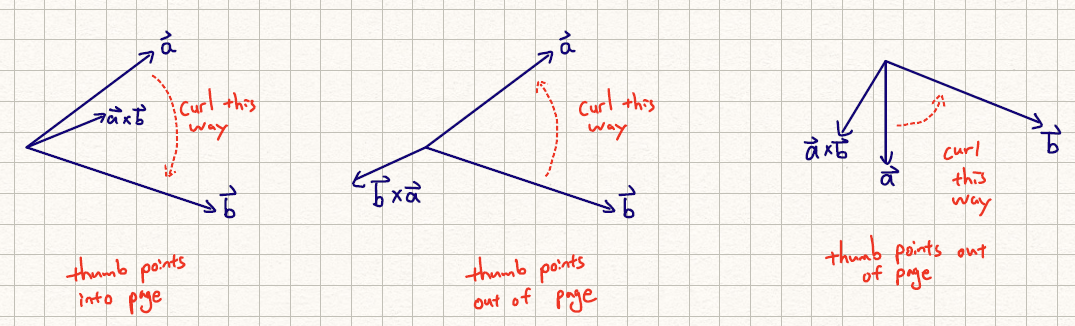 a⃗
a⃗ × b⃗
curl this
way
b⃗
thumb points
into page
a⃗
curl this
way
b⃗ × a⃗
b⃗
thumb points
out of page
a⃗ × b⃗
a⃗
b⃗
curl
this
way
thumb points out
of page